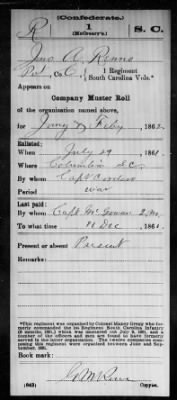 (Confederate.)
R 1 S. C.
(McCreary's.)
Jno A. Renno
Pvt, Co. C, 1 Regiment
South Carolina Vols.*
Appears on
Company Muster Roll
of the organization named above,
for Jany & Feby, 1862.
Enlisted:
When July 29 1861.
Where Columbia S.C.
By whom Capt
Period war
Last paid:
By whom Capt. McGowan
To what time 31 Dec 1861.
Present or absent Present
Remarks:
*This regiment was organized by Colonel Maxcy Gregg who for-
merly commanded the 1st Regiment South Carolina Infantry
Book mark:
(642) Copyist.